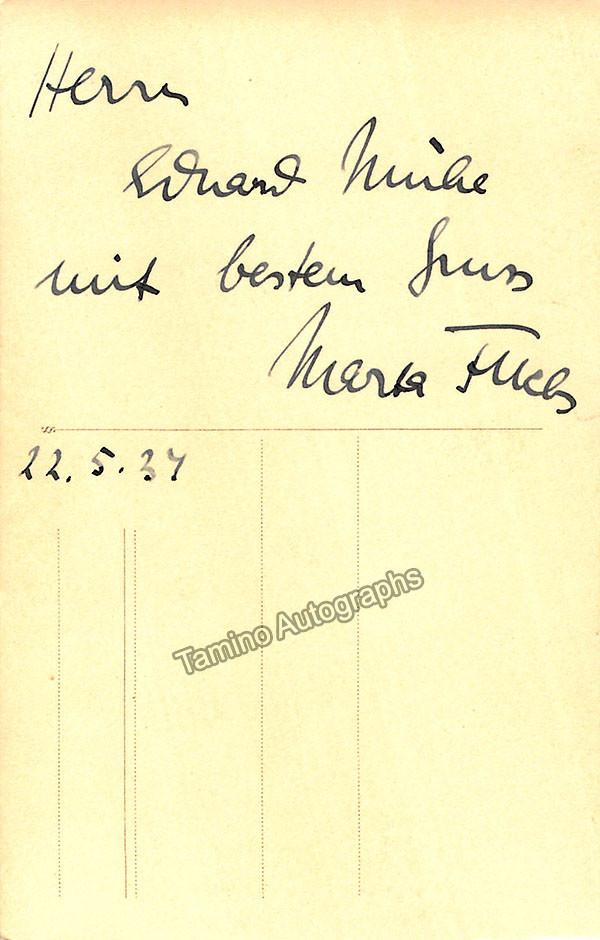 Herrn
Eduard Mühe
mit bestem Gruss
Marta Fuchs
22.5.37
Tamino Autographs